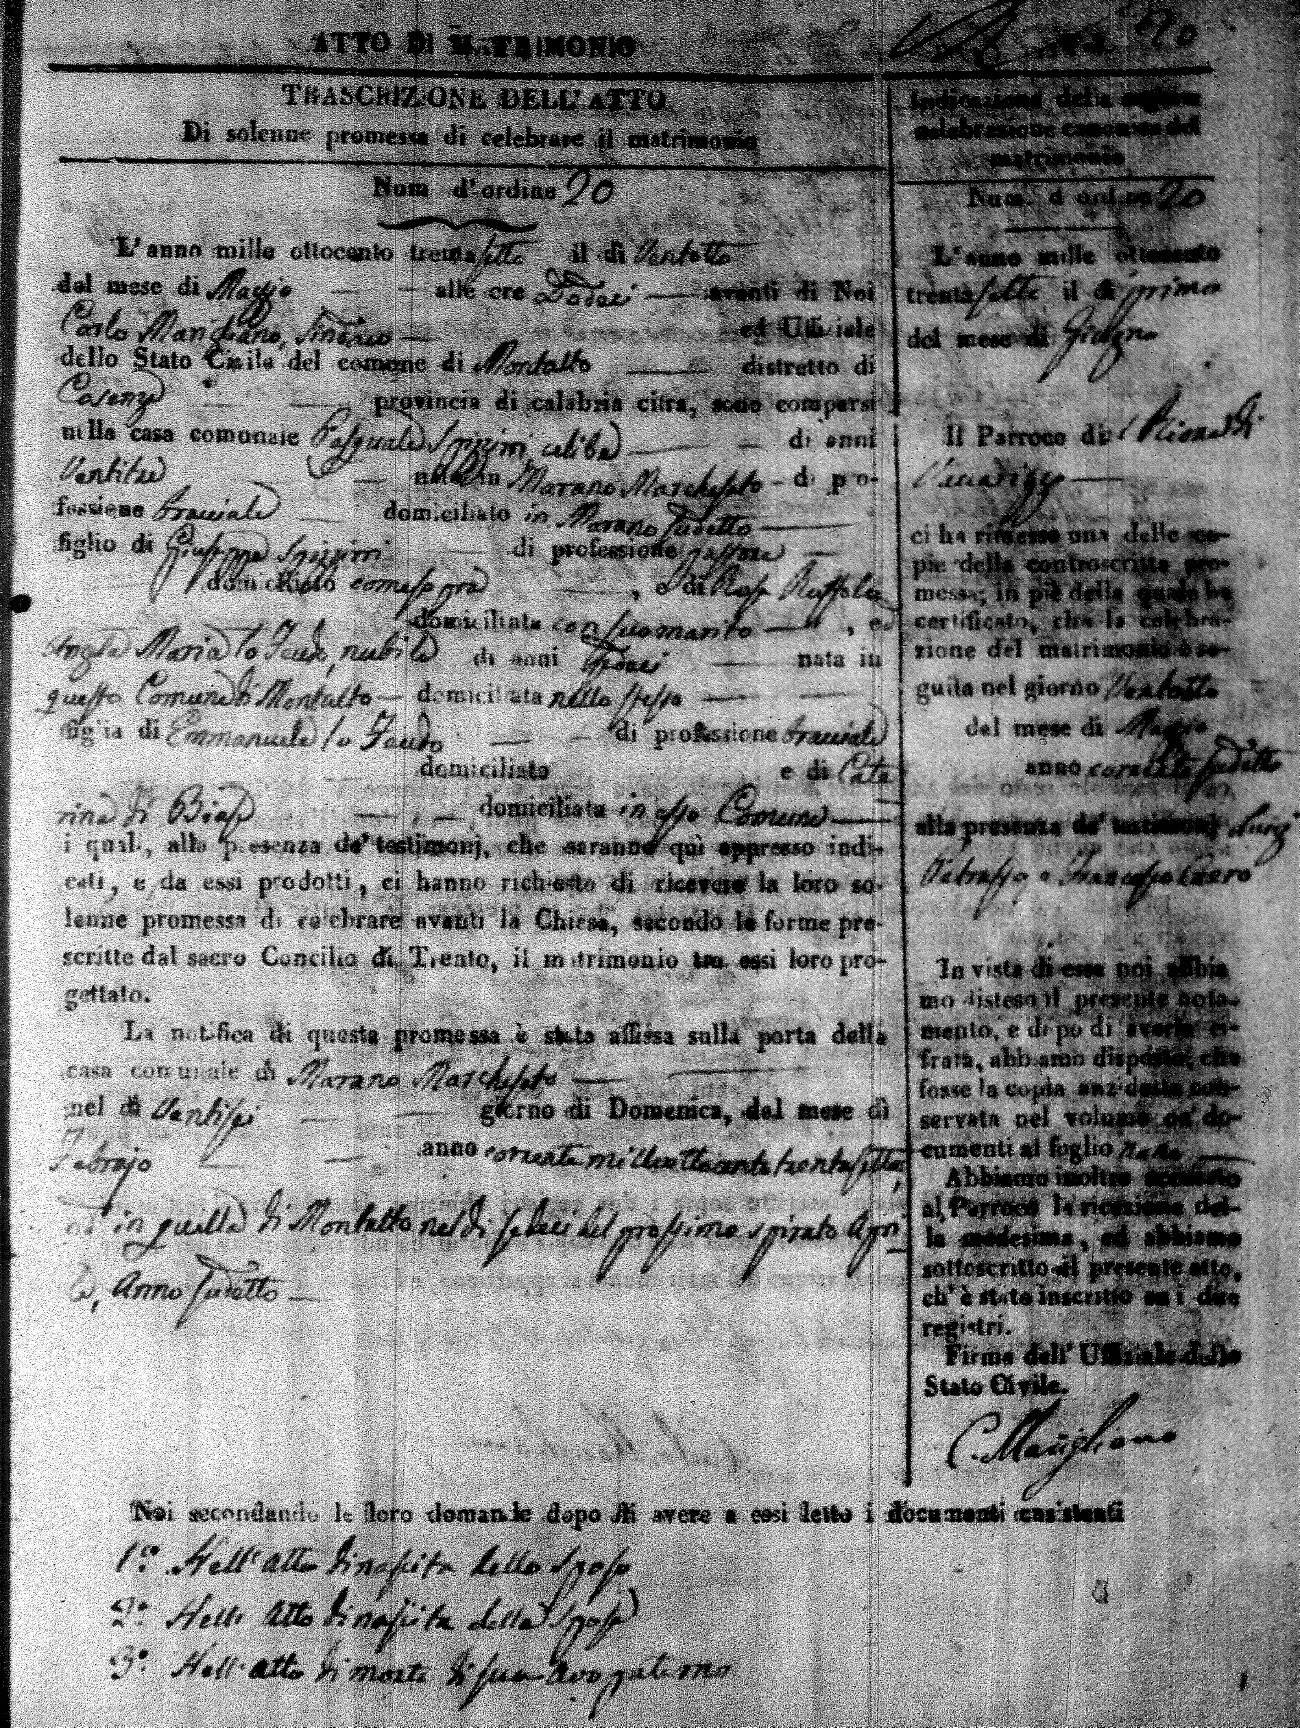 ATTO DI MATRIMONIO
20
TRASCRIZIONE DELL'ATTO
Di solenne promessa di celebrare il matrimonio
Num d'ordine 20
L'anno mille ottocento trentasette il di Ventotto
del mese di Maggio alle ore avanti di Noi
Carlo Sindaco ed Uffiziale
dello Stato Civile del comune di Montalto distretto di
Cosenza provincia di calabria citra, sono comparsi
nella casa comunale Pasquale Spizzirri celibe di anni
Ventitre nato in Marano Marchesato di pro-
fessione bracciale domiciliato in Marano sudetto
figlio di Giuseppe Spizzirri di professione
domiciliato come sopra, e di Rosa Ruffolo
domiciliata con suo marito, ed
Angela Maria lo Feudo, nubile di anni nata in
questo Comune di Montalto domiciliata nello stesso
figlia di Emmanuele lo Feudo di professione bracciale
domiciliato e di Cata
rina di Biase domiciliata in esso Comune
i quali, alla presenza de' testimonj, che saranno quì appresso indi-
cati, e da essi prodotti, ci hanno richiesto di ricevere la loro so-
lenne promessa di celebrare avanti la Chiesa, secondo le forme pre-
scritte dal sacro Concilio di Trento, il matrimonio tra essi loro pro-
gettato.
La notifica di questa promessa è stata affissa sulla porta della
casa comunale di Marano Marchesato
nel di Ventisei giorno di Domenica, del mese di
Febrajo anno corrente milleottocento trentasette,
ed in quella di Montalto nel di sedeci del prossimo spirato Apri
le, Anno sudetto
Indicazione della seguita
celebrazione canonica del
matrimonio
Num. d'ordine 20
L'anno mille ottocento
trentasette il di primo
del mese di Giugno
Il Parroco di
ci ha rimesso una delle co-
pie della controscritta pro-
messa; in piè della quale ha
certificato, che la celebra-
zione del matrimonio è se-
guita nel giorno Ventotto
del mese di Maggio
anno corrente sudetto
alla presenza de' testimonj Luigi
e Francesco
In vista di essa noi abbia
mo disteso il presente nota-
mento, e dopo di averla ci-
frata, abbiamo disposto, che
fosse la copia anzidetta con-
servata nel volume de' do-
cumenti al foglio
Abbiamo inoltre accusato
al Parroco la ricezione del-
la medesima, ed abbiamo
sottoscritto il presente atto,
ch' è stato inscritto su i due
registri.
Firma dell' Uffiziale dello
Stato Civile.
Noi secondando le loro domande dopo di avere a essi letto i documenti consistenti
1.° Nell'atto di nascita dello Sposo
2.° Nell' Atto di nascita della Sposa
3.° Nell' atto di morte di suo Avo paterno